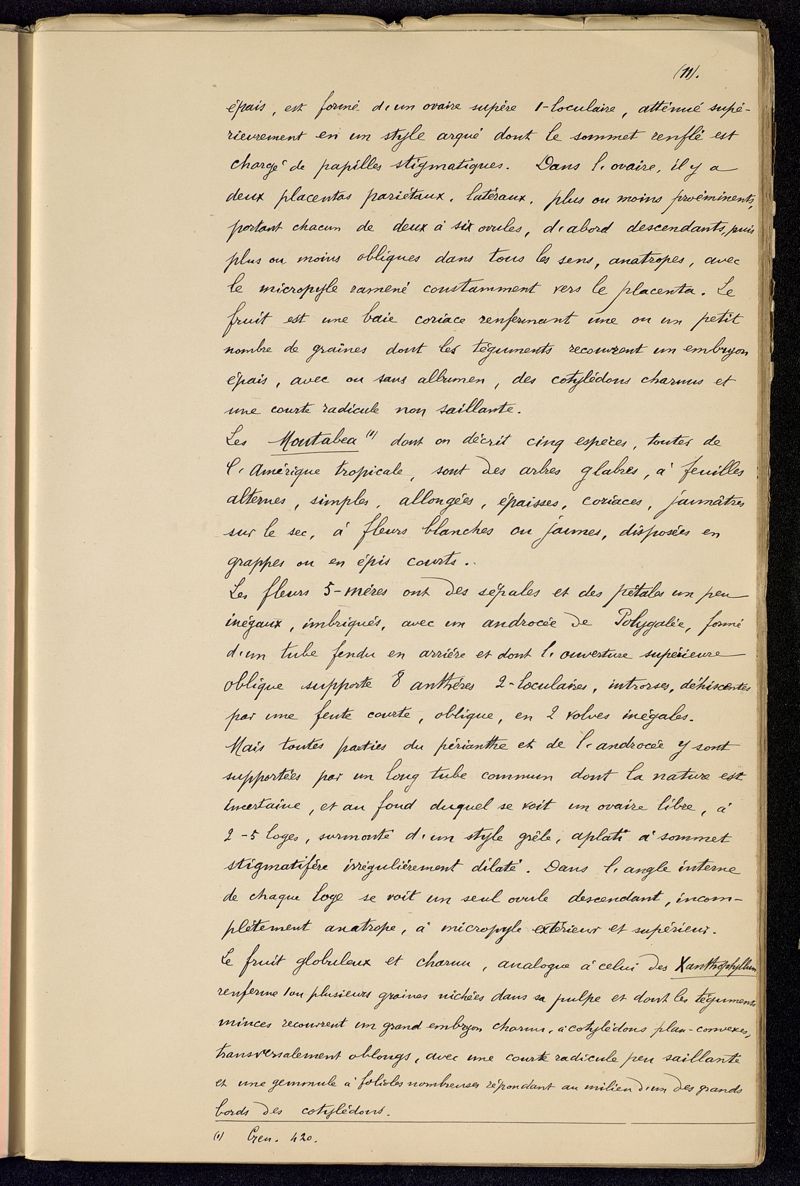 (11).
épais, est formé d'un ovaire supère 1-loculaire, atténué supé-
rieurement en un style arqué dont le sommet renflé est
chargé de papilles stigmatiques. Dans l'ovaire, il y a
deux placentas pariétaux, latéraux, plus ou moins proéminents,
portant chacun de deux à six ovules, d'abord descendants, puis
plus ou moins obliques dans tous les sens, anatropes, avec
le micropyle ramené constamment vers le placenta. Le
fruit est une baie coriace renfermant une ou un petit
nombre de graines dont les téguments recouvrent un embryon
épais, avec ou sans albumen, des cotylédons charnus et
une courte radicule non saillante.
Les Moutabea (1) dont on décrit cinq espèces, toutes de
l'Amérique tropicale, sont des arbres glabres, à feuilles
alternes, simples, allongées, épaisses, coriaces, jaunâtres
sur le sec, à fleurs blanches ou jaunes, disposées en
grappes ou en épis courts..
Les fleurs 5-mères ont des sépales et des pétales un peu
inégaux, imbriqués, avec un androcée de Polygalée, formé
d'un tube fendu en arrière et dont l'ouverture supérieure
oblique supporte 8 anthères 2-loculaires, introrses, déhiscentes
par une fente courte, oblique, en 2 valves inégales.
Mais toutes parties du périanthe et de l'androcée y sont
supportées par un long tube commun dont la nature est
incertaine, et au fond duquel se voit un ovaire libre, à
2-5 loges, surmonté d'un style grêle, aplati à sommet
stigmatifère irrégulièrement dilaté. Dans l'angle interne
de chaque loge se voit un seul ovule descendant, incom-
plètement anatrope, à micropyle extérieur et supérieur.
Le fruit globuleux et charnu, analogue à celui des Xanthophyllum
renferme 1 ou plusieurs graines nichées dans sa pulpe et dont les téguments
minces recouvrent un grand embryon charnu, à cotylédons plan-convexes,
transversalement oblongs, avec une courte radicule peu saillante
et une gemmule à folioles nombreuses répondant au milieu d'un des grands
bords des cotylédons.
(1) Gen. 420.